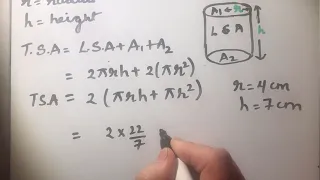 r = radius
h = height
T.S.A = L.S.A + A₁ + A₂
= 2πrh + 2(πr²)
TSA = 2 (πrh + πr²)
= 2 × 22/7
A₁ r
L S A
h
A₂
r = 4 cm
h = 7 cm